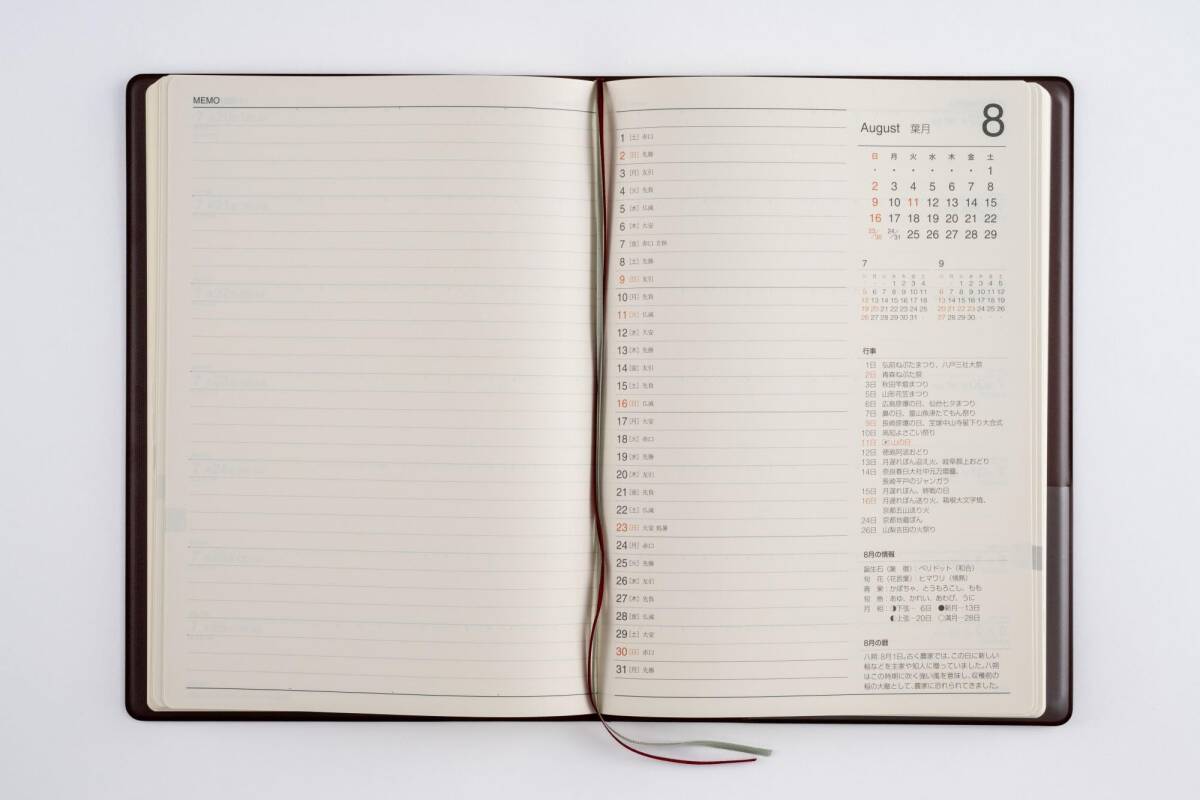 MEMO
8
August 葉月
日 月 火 水 木 金 土
・ ・ ・ ・ ・ ・ 1
2 3 4 5 6 7 8
9 10 11 12 13 14 15
16 17 18 19 20 21 22
23/30 24/31 25 26 27 28 29
1 [土] 赤口
2 [日] 先勝
3 [月] 友引
4 [火] 先負
5 [水] 仏滅
6 [木] 大安
7 [金] 赤口 立秋
8 [土] 先勝
9 [日] 友引
10 [月] 先負
11 [火] 仏滅
12 [水] 大安
13 [木] 先勝
14 [金] 友引
15 [土] 先負
16 [日] 仏滅
17 [月] 大安
18 [火] 赤口
19 [水] 先勝
20 [木] 友引
21 [金] 先負
22 [土] 仏滅
23 [日] 大安 処暑
24 [月] 赤口
25 [火] 先勝
26 [水] 友引
27 [木] 先負
28 [金] 仏滅
29 [土] 大安
30 [日] 赤口
31 [月] 先勝
7
日 月 火 水 木 金 土
1 2 3 4
5 6 7 8 9 10 11
12 13 14 15 16 17 18
19 20 21 22 23 24 25
26 27 28 29 30 31
9
日 月 火 水 木 金 土
1 2 3 4 5
6 7 8 9 10 11 12
13 14 15 16 17 18 19
20 21 22 23 24 25 26
27 28 29 30
行事
1日 弘前ねぷたまつり、八戸三社大祭
2日 青森ねぶた祭
3日 秋田竿燈まつり
5日 山形花笠まつり
6日 広島原爆の日、仙台七夕まつり
7日 鼻の日、富山魚津たてもん祭り
9日 長崎原爆の日、宝塚中山寺星下り大会式
10日 高知よさこい祭り
11日 山の日
12日 徳島阿波おどり
13日 月遅れぼん迎え火、岐阜郡上おどり
14日 奈良春日大社中元万燈籠、
長崎平戸のジャンガラ
15日 月遅れぼん、終戦の日
16日 月遅れぼん送り火、箱根大文字焼、
京都五山送り火
24日 京都地蔵ぼん
26日 山梨吉田の火祭り
8月の情報
誕生石（葉 徴）：ペリドット（和合）
旬 花（花言葉）：ヒマワリ（情熱）
青 果：かぼちゃ、とうもろこし、もも
旬 魚：あゆ、かれい、あわび、うに
月 相：◑下弦…6日 ●新月…13日
◐上弦…20日 ○満月…28日
8月の暦
八朔：8月1日。古く農家では、この日に新しい
稲などを主家や知人に贈っていました。八朔
はこの時期に吹く強い風を意味し、収穫前の
稲の大敵として、農家に恐れられてきました。